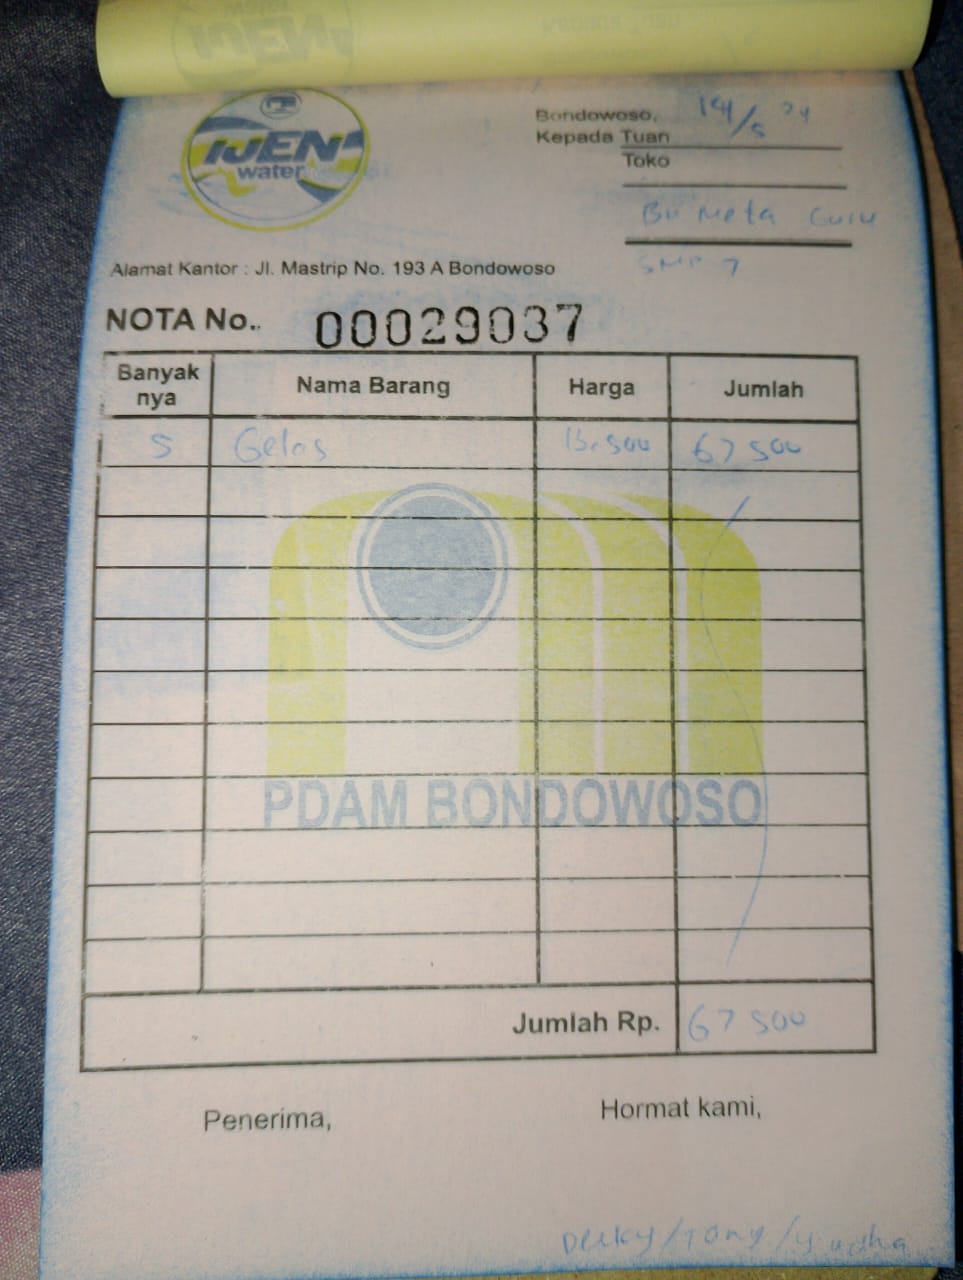 IJEN
water
Bondowoso, 14/5 24
Kepada Tuan
Toko
Bu Meta Guru
SMP 7
Alamat Kantor : Jl. Mastrip No. 193 A Bondowoso
NOTA No.. 00029037
Banyak nya Nama Barang Harga Jumlah
5 Gelas 13.500 67 500
PDAM BONDOWOSO
Jumlah Rp. 67 500
Penerima, Hormat kami,
/Tony/Yudha